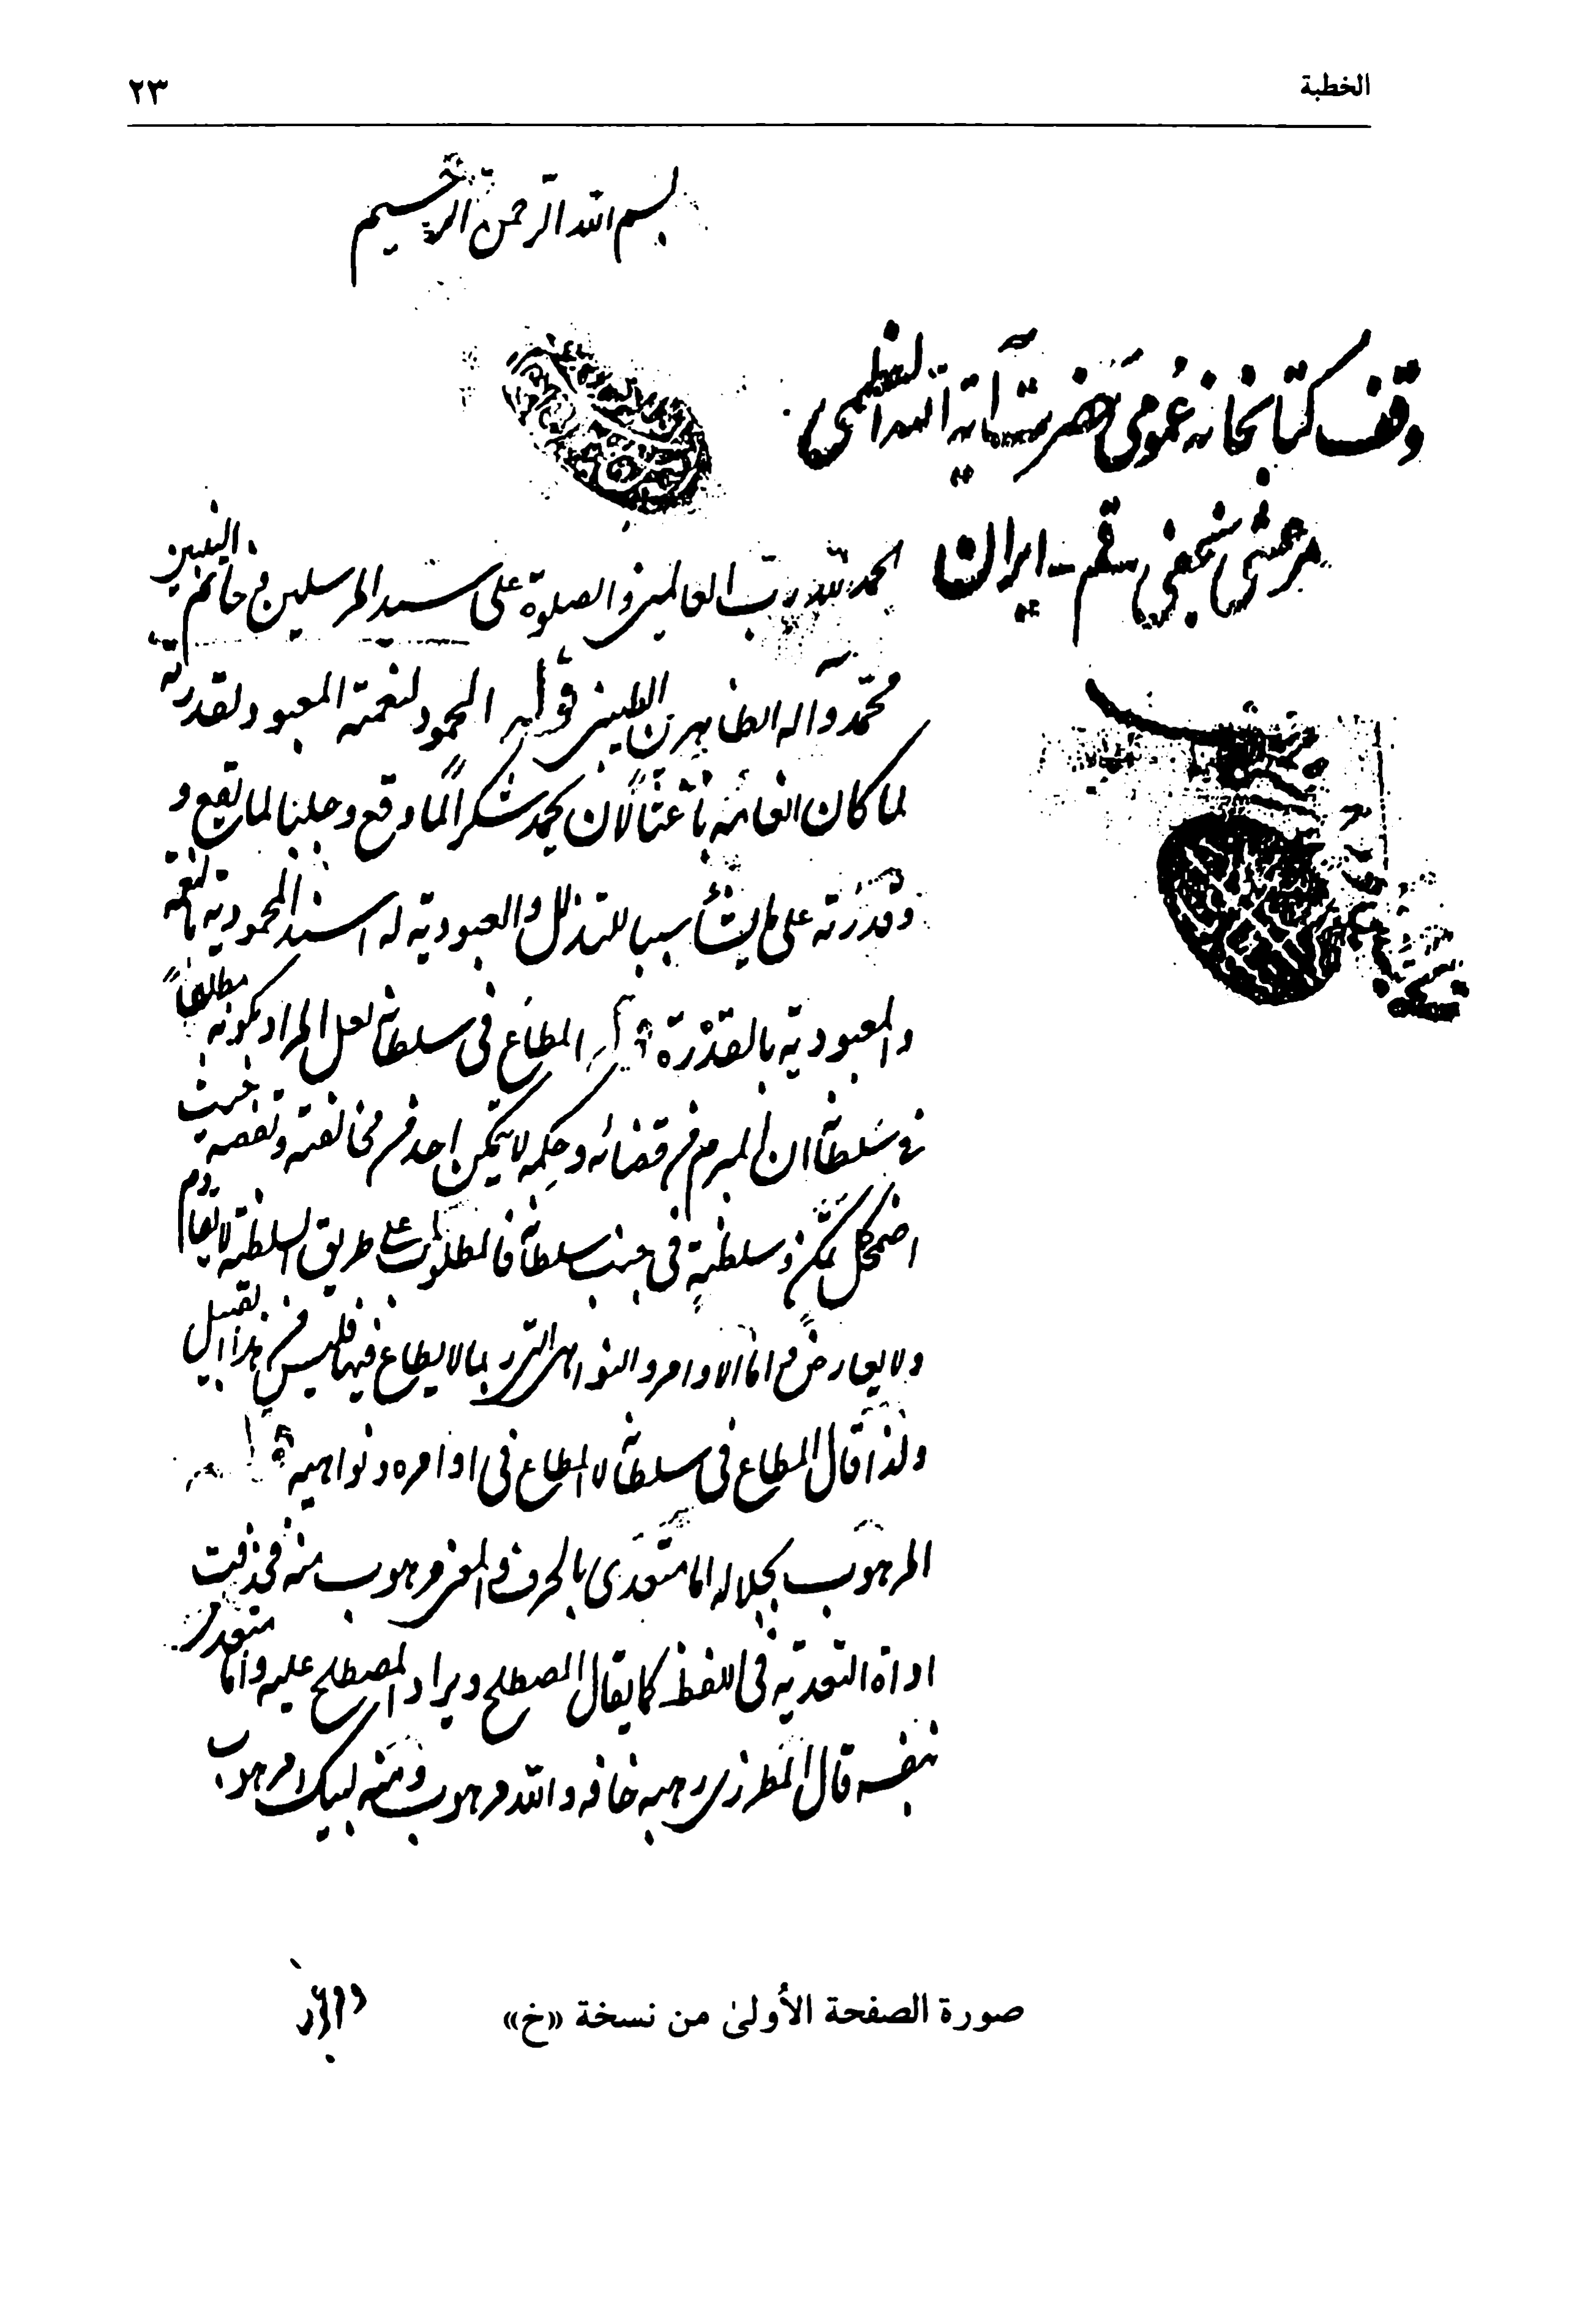 الخطبة ٢٣
بسم الله الرحمن الرحيم
وقف كتابخانه عمومى حضرت آية الله العظمى
مرعشى نجفى - قم - ايران
الحمد لله رب العالمين والصلوة على سيد المرسلين و خاتم النبيين
محمد وآله الطاهرين الطيبين قوله المحمود لنعمته المعبود لقدرته
لما كان انعامه باعثا لان يحمد شكرا لما وقع و جلبا لما يقع و
وقدرته على ما يشأ سببا للتذلل والعبودية له اسند المحمودية بالنعمة
والمعبودية بالقدرة المطاع فى سلطانه لعل المراد بكونه مطاعاً
فى سلطانه ان المبرم من قضائه وحكمه لا يتمكن احد من مخالفته و نقضه حيث
اضمحل كل تمكن و سلطنة فى جنب سلطانه فالمطلوب على طريق السلطنة لا يقاوم
ولا يعارض و اما الاوامر والنواهى التى ربما لا يطاع فيها فليس من هذا القبيل
ولذا قال المطاع فى سلطانه لا المطاع فى اوامره ونواهيه
المرهوب بجلاله اما متعدى بالحرف والمعنى مرهوب منه فحذفت
اداة التعدية فى اللفظ كما يقال المصطلح ويراد المصطلح عليه واما متعد
بنفسه قال المطرزى رهبه خافه والله مرهوب ومنه لبيك مرهوب
صورة الصفحة الأولىٰ من نسخة «خ»